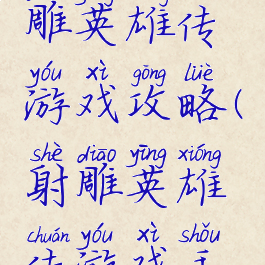 雕英雄传
yóu xì gōng lüè
游戏攻略(
shè diāo yīng xióng
射雕英雄
chuán yóu xì shǒu
传游戏手